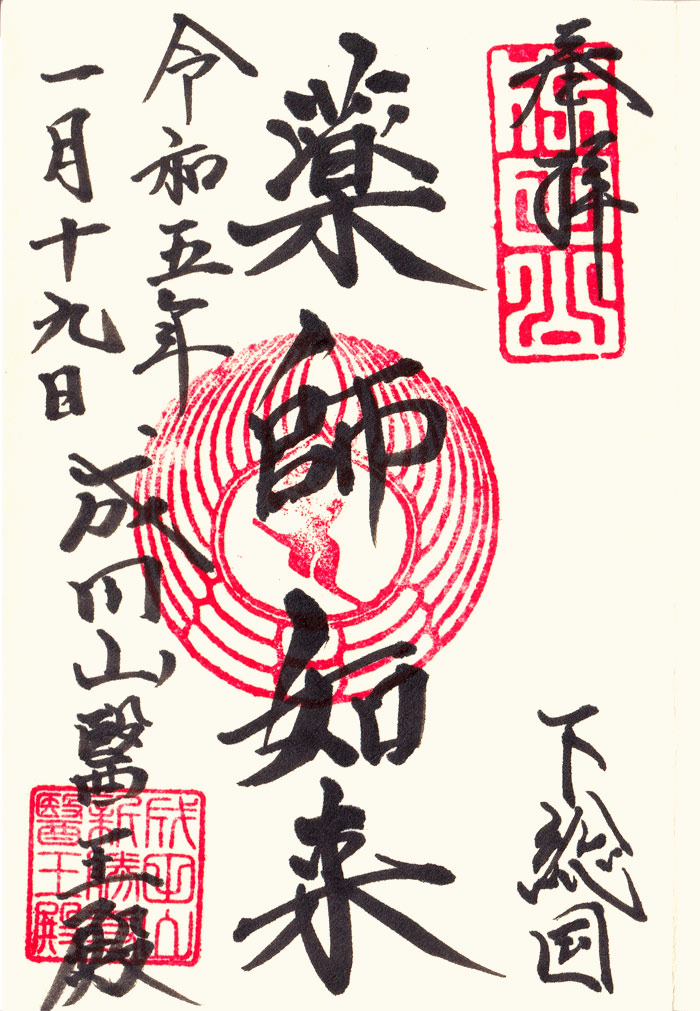 奉拝
下総国
薬師如来
令和五年
一月十九日
成田山醫王殿
成田山
新勝寺
醫王殿
成田山